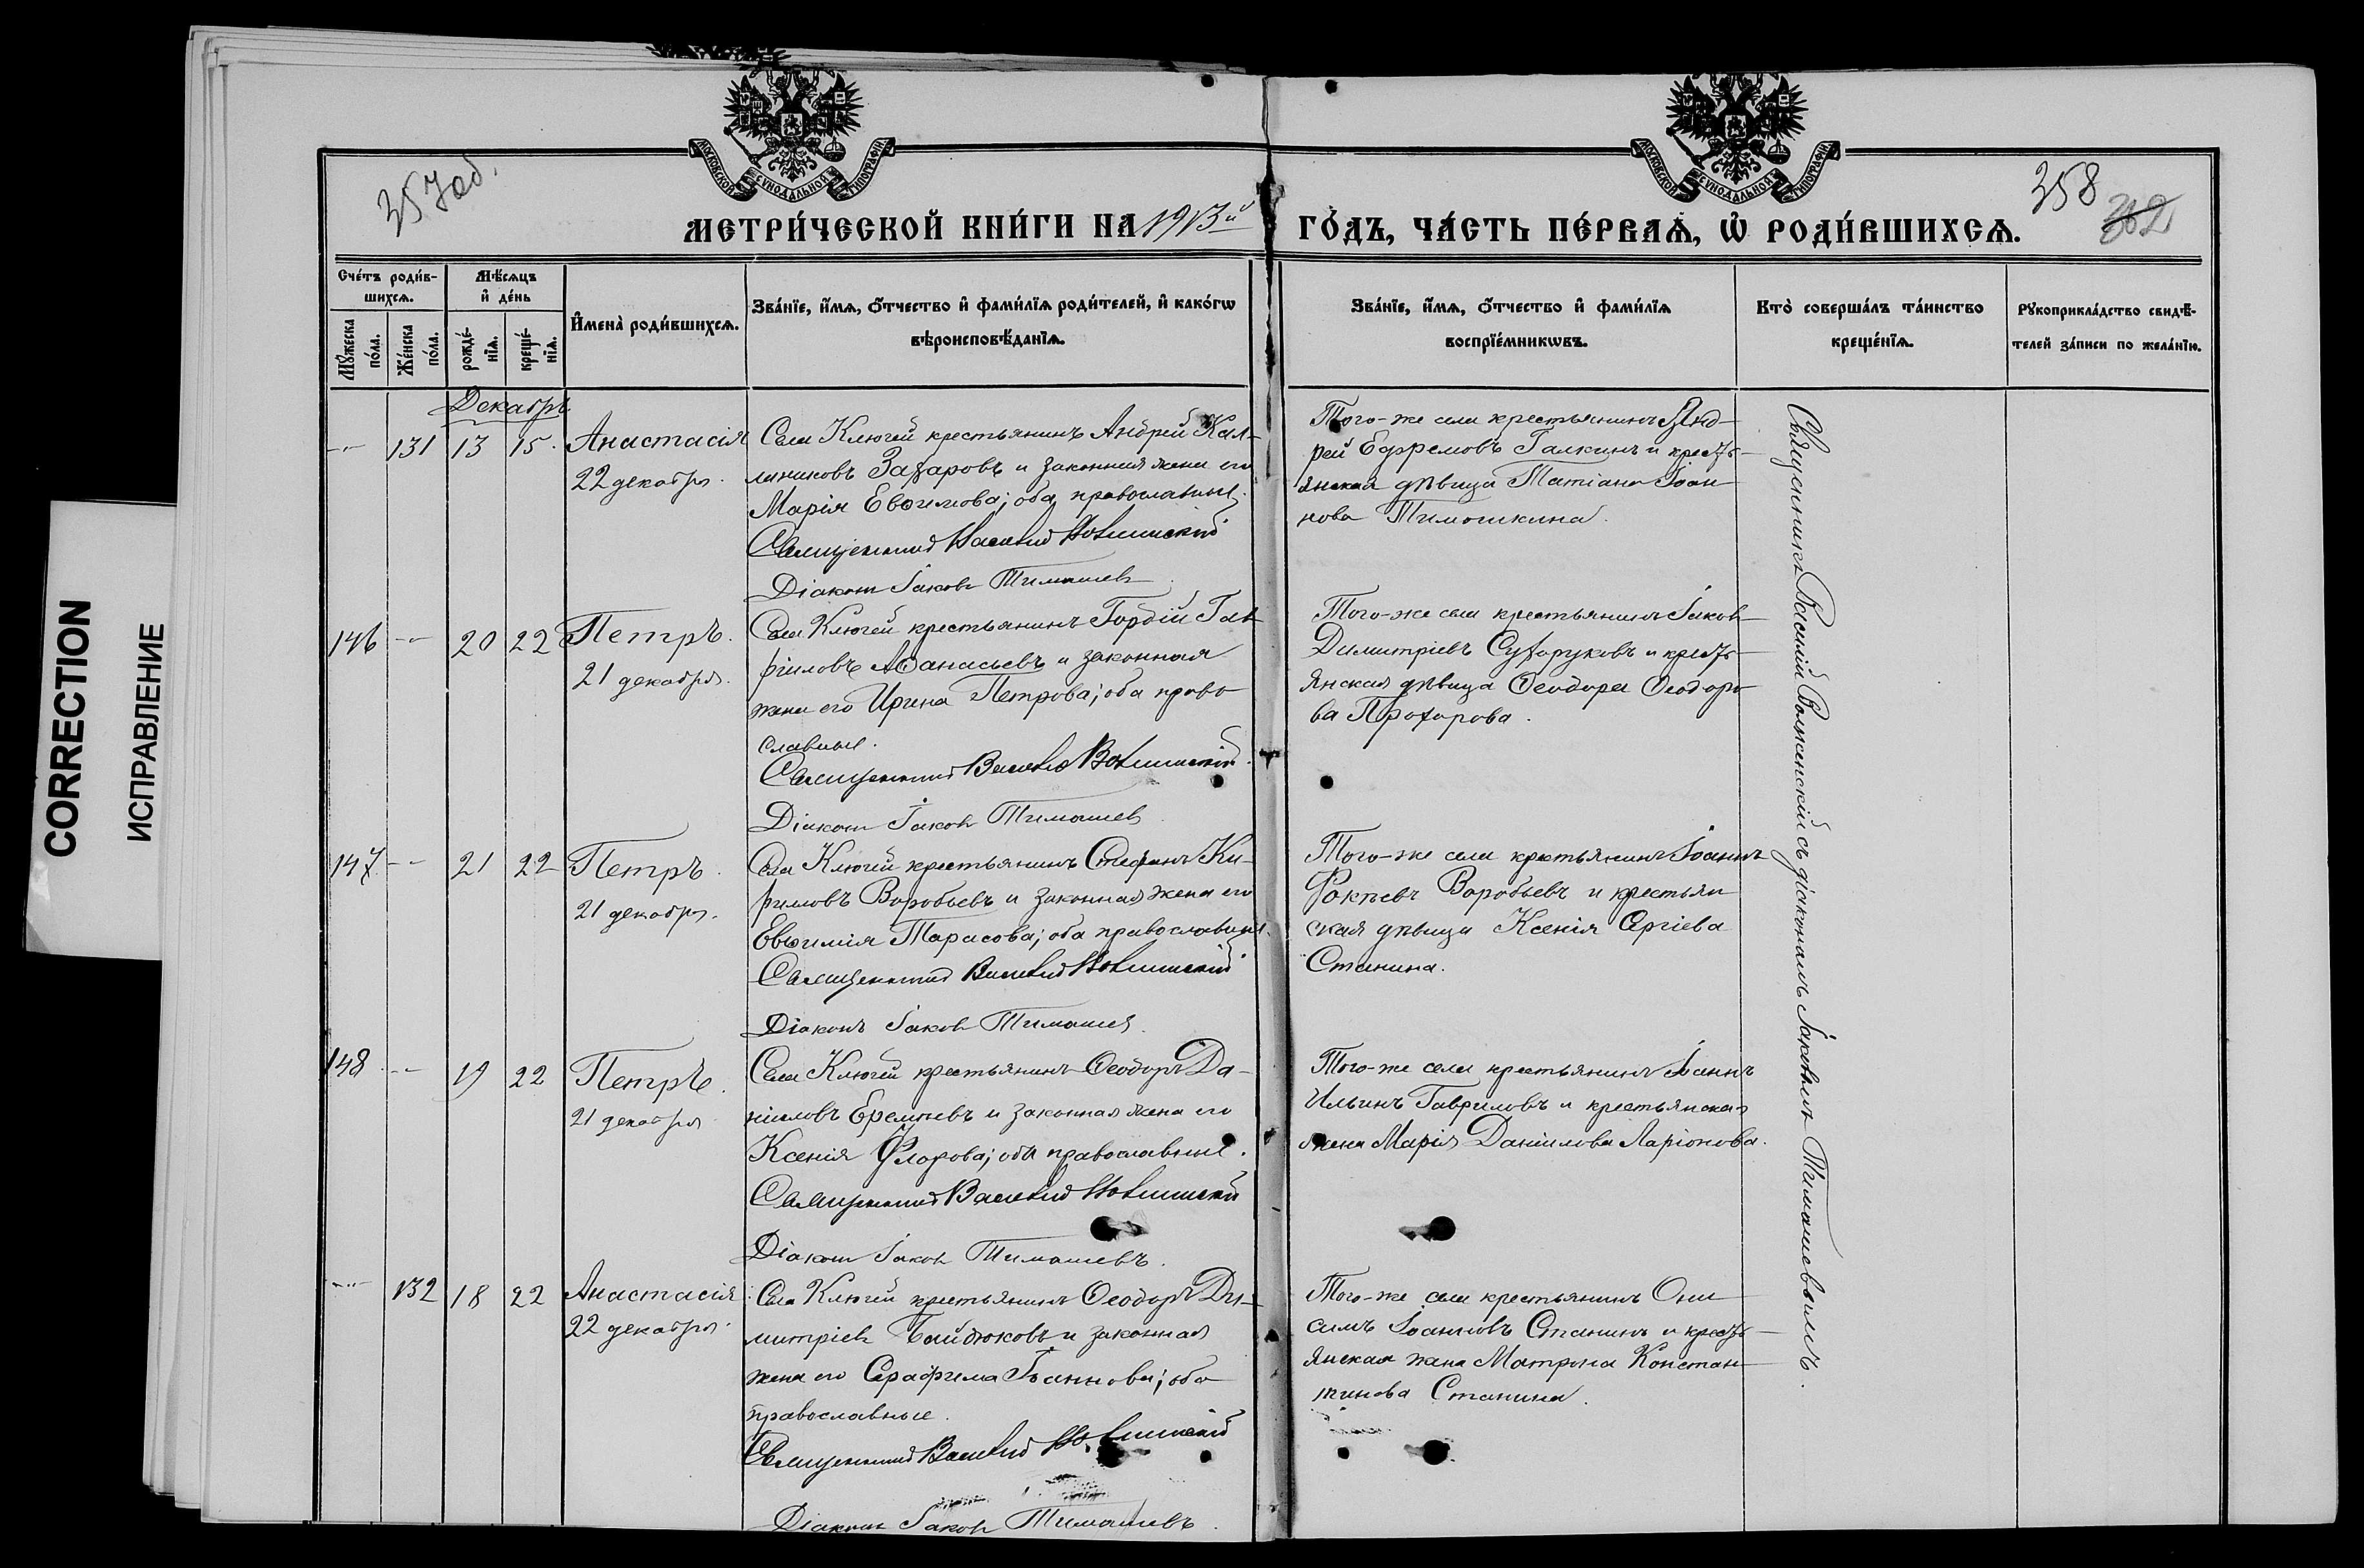 CORRECTION
ИСПРАВЛЕНИЕ
МОСКОВСКОЙ СѴНОДАЛЬНОЙ ТИПОГРАФІИ
МОСКОВСКОЙ СѴНОДАЛЬНОЙ ТИПОГРАФІИ
357об.
358
362
МЕТРИ́ЧЕСКОЙ КНИ́ГИ НА 1913й ГО́ДЪ, ЧА́СТЬ ПЕ́РВАѦ, Ѡ҆ РОДИ́ВШИХСѦ.
Сче́тъ роди́в-
шихсѧ.
Мꙋ́жеска
по́ла.
Же́нска
по́ла.
Мѣ́сѧцъ
и҆ де́нь
рожде́-
нїѧ.
креще́-
нїѧ.
И҆мена̀ роди́вшихсѧ.
Зва́нїе, и҆́мѧ, ѻ҆́тчество и҆ фами́лїѧ роди́телей, и҆ како́гѡ
вѣроисповѣ́данїѧ.
Зва́нїе, и҆́мѧ, ѻ҆́тчество и҆ фами́лїѧ
воспрїе́мникѡвъ.
Кто̀ соверша́лъ та́инство
креще́нїѧ.
Рꙋкоприкла́дство свидѣ́-
телей за́писи по жела́нїю.
Декабрь
131 13 15.
Анастасія
22 декабря.
Села Ключей крестьянинъ Андрей Кал-
линиковъ Захаровъ и законная жена его
Марія Евѳимова; оба православные.
Священникъ Василій
Діаконъ Іаковъ Тимашевъ
Того-же села крестьянинъ Анд-
рей Ефремовъ Галкинъ и кресть-
янская дѣвица Татіана Іоан
нова Тимошкина.
146 20 22
Петръ.
21 декабря.
Села Ключей крестьянинъ Гордій Гав-
ріиловъ Аѳанасьевъ и законная
жена его Ирина Петрова; оба право
славные.
Священникъ Василій
Діаконъ Іаковъ Тимашевъ
Того-же села крестьянинъ Іаковъ
Димитріевъ Сухоруковъ и кресть-
янская дѣвица Ѳеодора Ѳеодоро
ва Прохорова.
147. 21 22
Петръ.
21 декабря.
Села Ключей крестьянинъ Стефанъ Ки-
риловъ Воробьевъ и законная жена его
Евѳимія Тарасова; оба православные.
Священникъ Василій
Діаконъ Іаковъ Тимашевъ.
Того-же села крестьянинъ Іоаннъ
Фокѣевъ Воробьевъ и крестьян
ская дѣвица Ксенія Сергіева
Станина.
148 19 22
Петръ.
21 декабря
Села Ключей крестьянинъ Ѳеодоръ Да-
ніиловъ Еремѣевъ и законная жена его
Ксенія Флорова; оба православные.
Священникъ Василій
Діаконъ Іаковъ Тимашевъ.
Того-же села крестьянинъ Іоаннъ
Ильинъ Гавриловъ и крестьянская
жена Марія Даніилова Ларіонова.
132 18 22
Анастасія
22 декабря.
Села Ключей крестьянинъ Ѳеодоръ Ди-
митріевъ Байдюковъ и законная
жена его Серафима Іоаннова; оба
православные.
Священникъ Василій
Діаконъ Іаковъ Тимашевъ.
Того-же села крестьянинъ Они
симъ Іоанновъ Станинъ и кресть-
янская жена Матрона Констан-
тинова Станина.
Священникъ Василій съ діакономъ Іаковомъ Тимашевымъ.